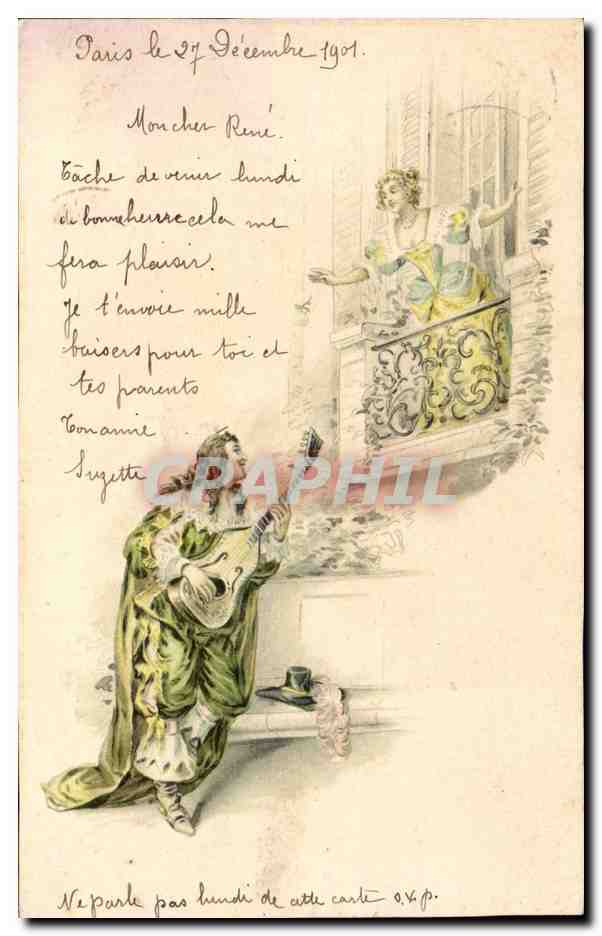 Paris le 27 Décembre 1901.
Mon cher René.
Tâche de venir lundi
de bonne heure cela me
fera plaisir.
Je t'envoie mille
baisers pour toi et
tes parents
Ton amie
Suzette
CPARPHIL
Ne parle pas lundi de cette carte s.v.p.